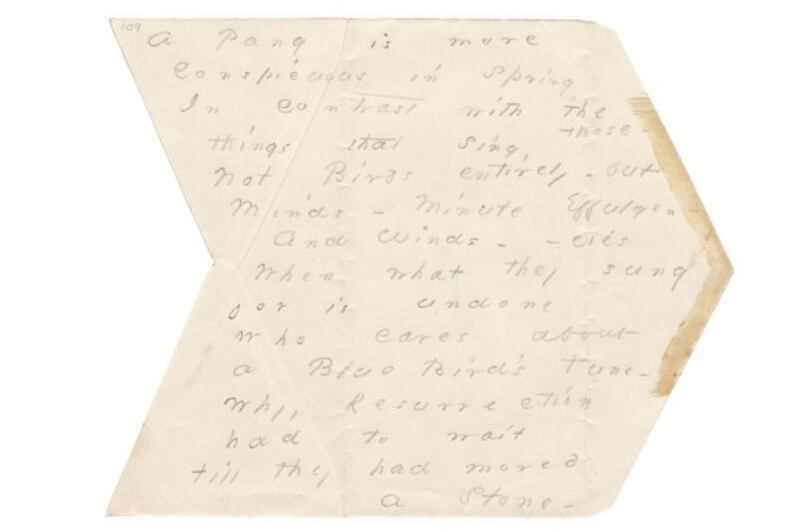 109
A Pang is more
Conspicuous in Spring
In contrast with the
those
things that sing
Not Birds entirely - but
Minds - Minute Effulgen
And Winds - - cies
When what they sung
for is undone
Who cares about
a Blue Bird's Tune -
Why, Resurrection
had to wait
till they had moved
a Stone -